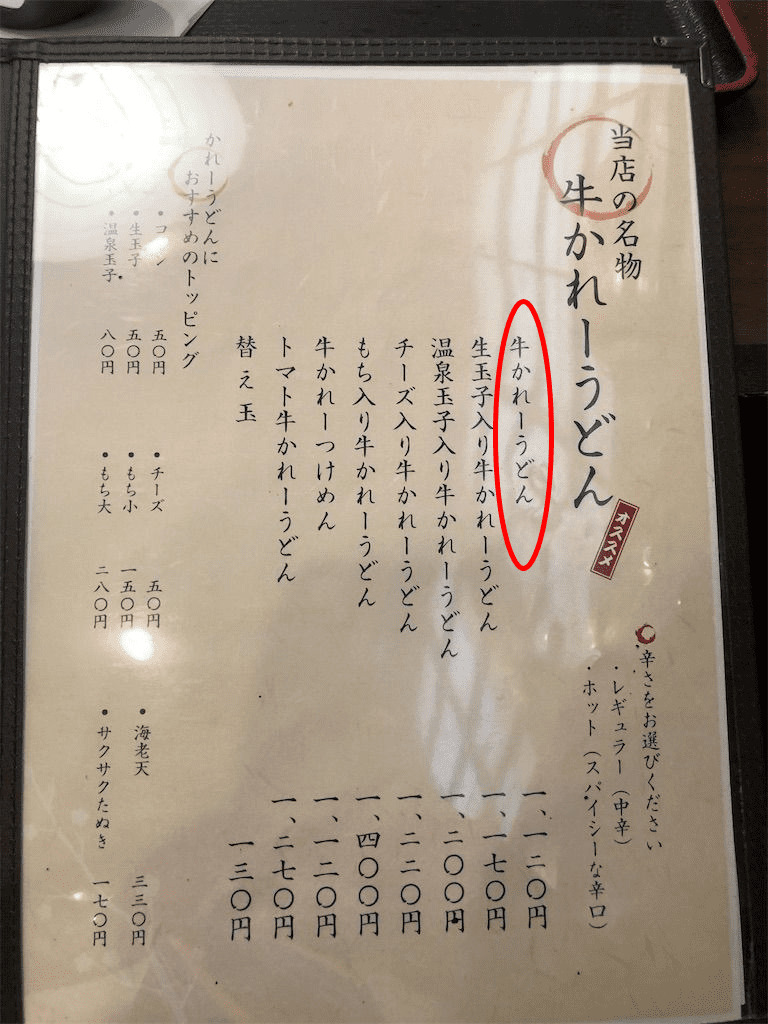 当店の名物
牛かれーうどん
オススメ
辛さをお選びください
・レギュラー（中辛）
・ホット（スパイシーな辛口）
牛かれーうどん 一、一二〇円
生玉子入り牛かれーうどん 一、一七〇円
温泉玉子入り牛かれーうどん 一、二〇〇円
チーズ入り牛かれーうどん 一、二二〇円
もち入り牛かれーうどん 一、四〇〇円
牛かれーつけめん 一、一二〇円
トマト牛かれーうどん 一、二七〇円
替え玉 一三〇円
かれーうどんに
おすすめのトッピング
・コーン 五〇円
・生玉子 五〇円
・温泉玉子 八〇円
・チーズ 五〇円
・もち小 一五〇円
・もち大 二八〇円
・海老天 三三〇円
・サクサクたぬき 一七〇円